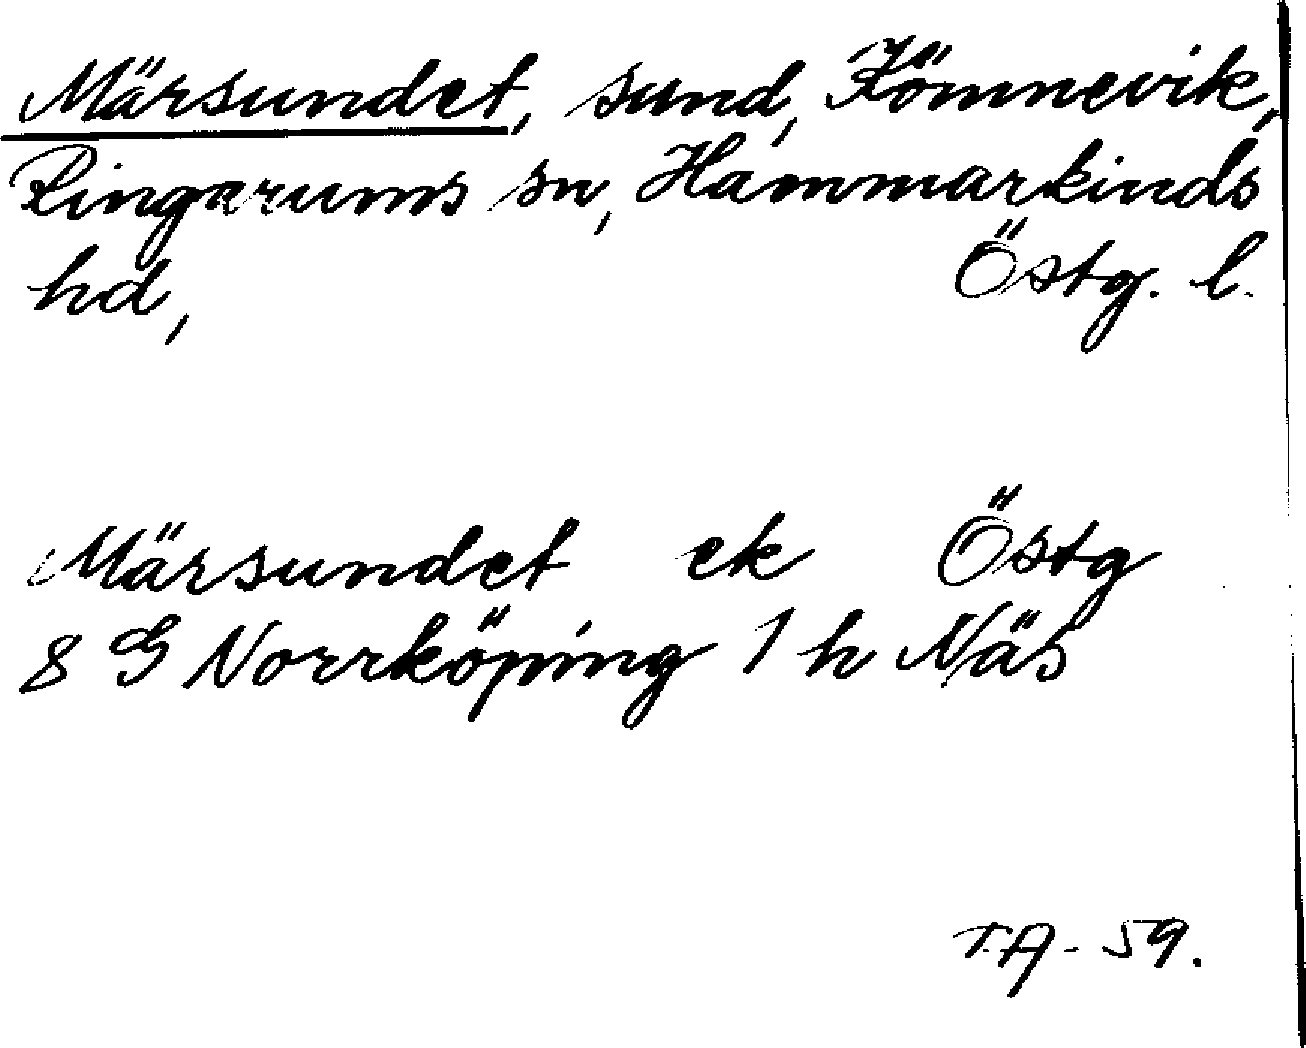 Märsundet, sund, Kömnevik,
Ringarums sn, Hammarkinds
hd, Östg. l.
Märsundet ek Östg
8 G Norrköping 1 h Näs
T.A- 59.